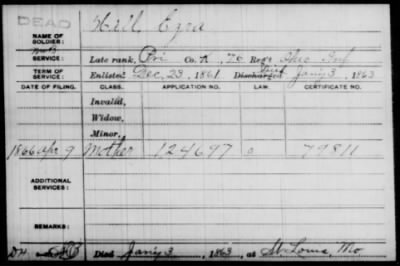 DEAD
NAME OF SOLDIER: Hill, Ezra
SERVICE: Late rank, Pri Co. K, 76 Reg't Ohio Inf
TERM OF SERVICE: Enlisted Dec. 23, 1861 Discharged Jany 3, 1863
DATE OF FILING. CLASS. APPLICATION NO. LAW. CERTIFICATE NO.
Invalid,
Widow,
Minor,
1866 Apr 9 Mother 124697 a 79811
ADDITIONAL SERVICES:
REMARKS:
Died Jany 3, 1863, at St. Louis, Mo